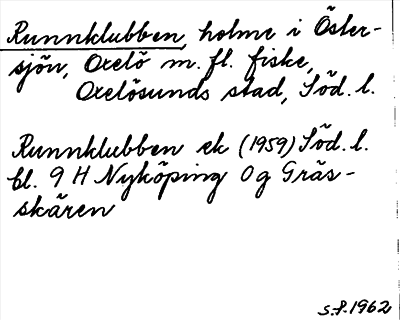 Runnklubben, holme i Öster-
sjön, Oxelö m. fl. fiske,
Oxelösunds stad, Söd. l.
Runnklubben ek (1959) Söd. l.
bl. 9 H Nyköping 0 g Gräs-
skären
s.f. 1962